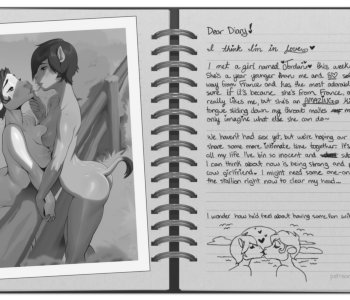 Dear Diary!
I think I'm in love
I met a girl named Jordan this week
She's a year younger than me and so
way from France and has the most adorable
sure if it's because she's from France,
really likes me, but she's an AMAZING
tongue sliding down my throat makes me
only imagine what else she can do~
We haven't had sex yet, but we're hoping
share some more intimate time together. It's
all my life I've bin so inocent and
I can think about now is being strong and
cow girlfriend. I might need some one-on
the stallion right now to clear my head...
I wonder how he'd feel about having some fun with